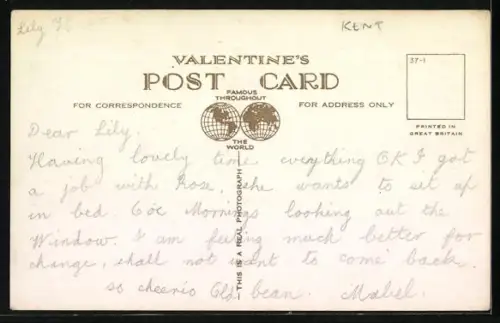 Lily
KENT
VALENTINE'S
POST CARD
37-1
FAMOUS
THROUGHOUT
THE
WORLD
FOR CORRESPONDENCE
FOR ADDRESS ONLY
PRINTED IN
GREAT BRITAIN
THIS IS A REAL PHOTOGRAPH
Dear Lily.
Having lovely time everything OK I got
a job with Rose, she wants to sit up
in bed. Mornings looking out the
Window. I am feeling much better for
change, shall not want to come back.
so cheerio Old bean. Mabel.